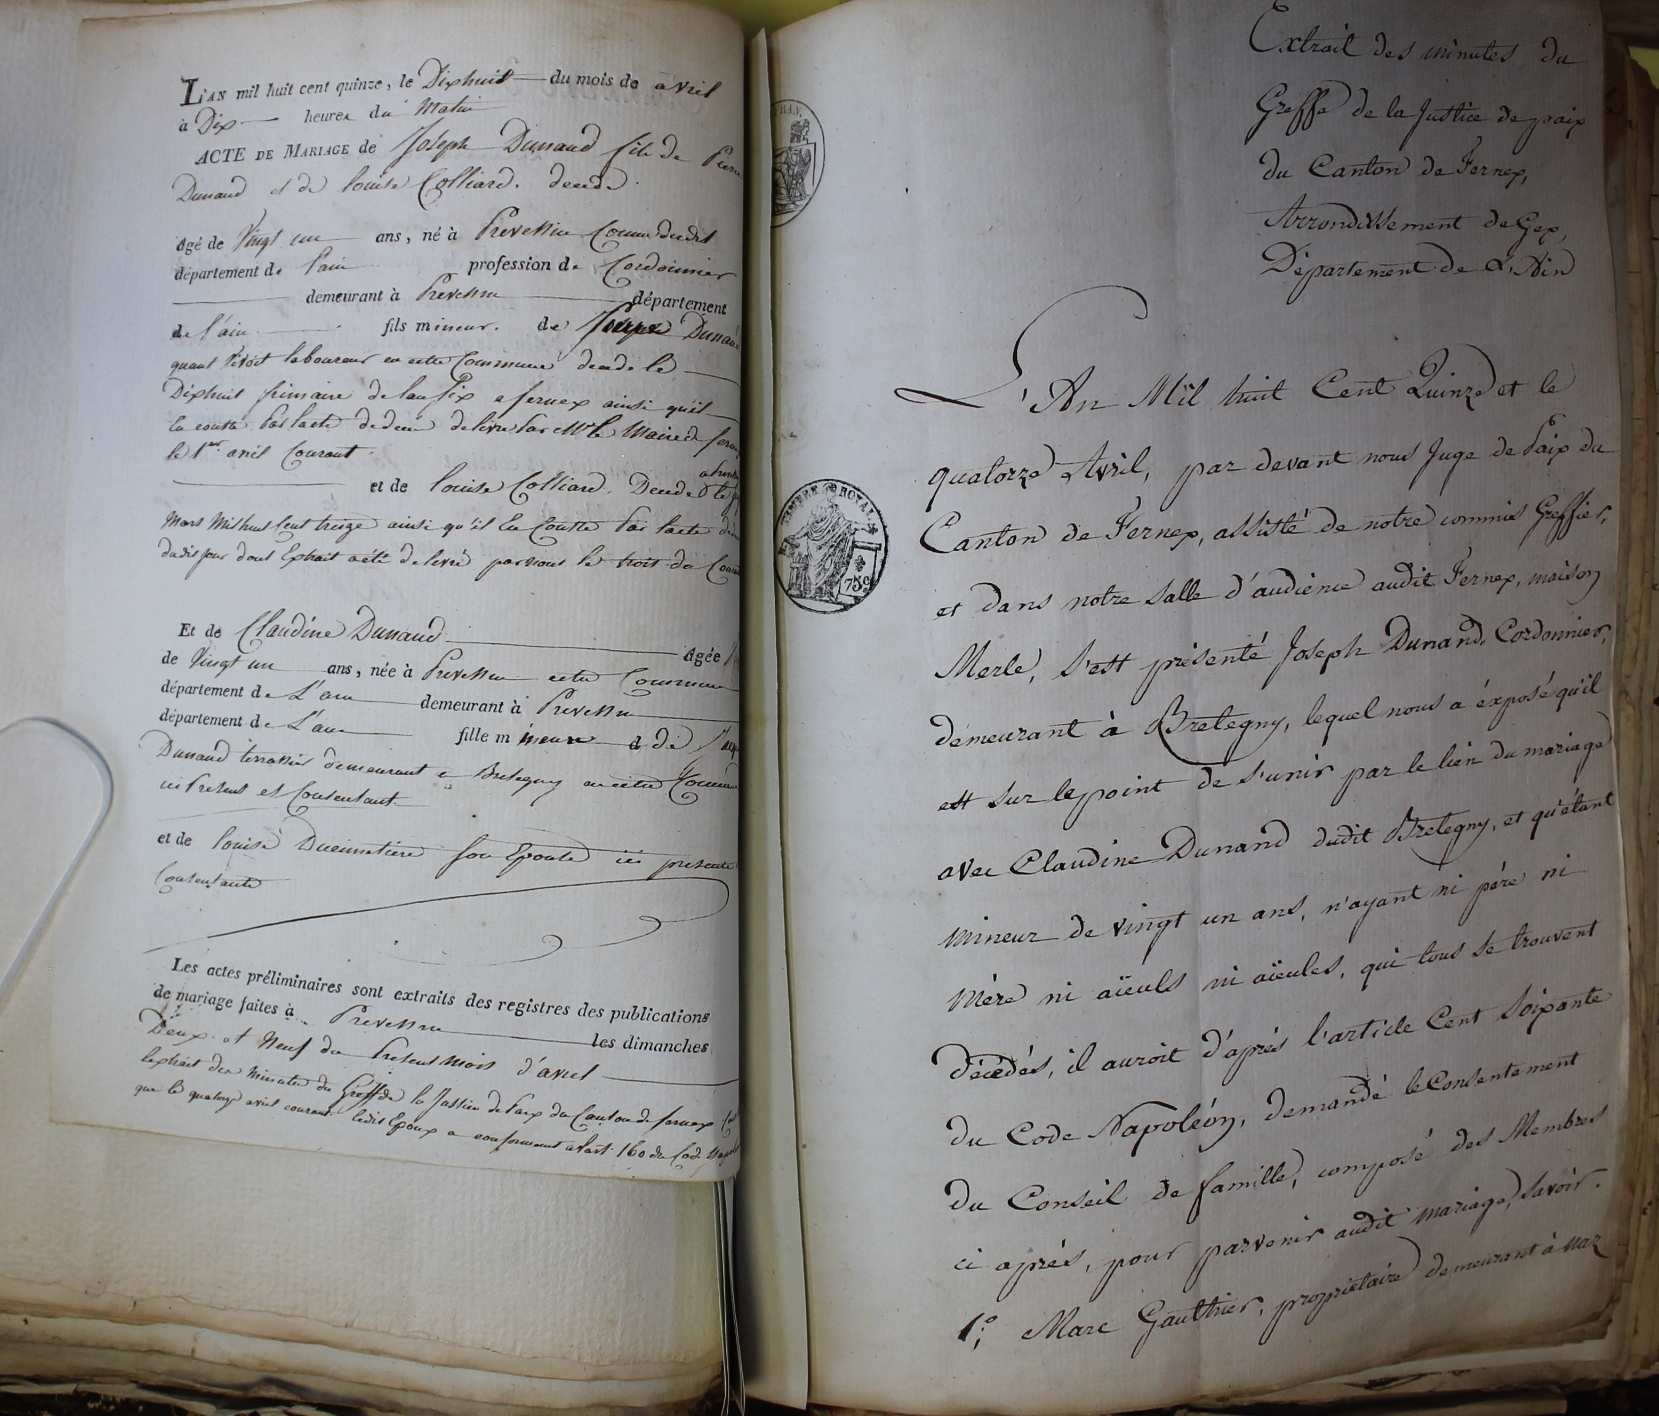 L'AN mil huit cent quinze, le Dixhuit du mois de avril
à Dix heures du Matin
ACTE DE MARIAGE de Joseph Dunand fils de Pierre
Dunand et de Louise Colliard. decede
agé de Vingt un ans, né à Prevessin Comm dudit
département de l'ain profession de Cordonnier
demeurant à Prevessin département
de l'ain fils mineur. de Dunand
quant Vivoit laboureur en cette Commune decede le
Dixhuit frimaire de lan six a fernex ainsi qu'il
Conste Par lacte de deces delivré Par Mr le Maire de
le 1er avril Courant.
et de Louise Colliard. Decedé le
Mars Mil huit Cent treize ainsi qu'il En Conste Par lacte
dudit jour dont Extrait a été delivré par nous le trois du
Et de Claudine Dunand agée
de Vingt un ans, née à Prevessin cette Commune
département de L'ain demeurant à Prevessin
département de L'ain fille mineure de
Dunand demeurant a Bretegny en cette Commune
ici Present et Consentant
et de Louise son Epouse ici presente
Consentante
Les actes préliminaires sont extraits des registres des publications
de mariage faites à Prevessin les dimanches
Deux et Neuf du Present mois d'avril
lextrait des Minutes du Greffe de la Justice de Paix du Canton de fernex
que le quatorze avril courant ledit Epoux a conformement a lart. 160 du Code
FRAN.
TIMBRE ROYAL
75c
Extrait des minutes du
Greffe de la Justice de paix
du Canton de Fernex,
Arrondissement de Gex,
Département de L'Ain
L'An Mil huit Cent Quinze et le
quatorze Avril, par devant nous Juge de Paix du
Canton de Fernex, assisté de notre commis Greffier,
et dans notre salle d'audience audit Fernex, maison
Merle, s'est présenté Joseph Dunand, Cordonnier,
demeurant à Bretegny, lequel nous a éxposé qu'il
est sur le point de s'unir par le lien du mariage
avec Claudine Dunand dudit Bretegny, et qu'étant
mineur de vingt un ans, n'ayant ni pére ni
Mére ni aïeuls ni aïeules, qui tous se trouvent
décédés, il auroit d'aprés l'article Cent Soixante
du Code Napoléon, demandé le Consentement
du Conseil de famille, composé des Membres
ci aprés, pour parvenir audit mariage, savoir.
1.° Marc Gaulthier, propriétaire demeurant à nar